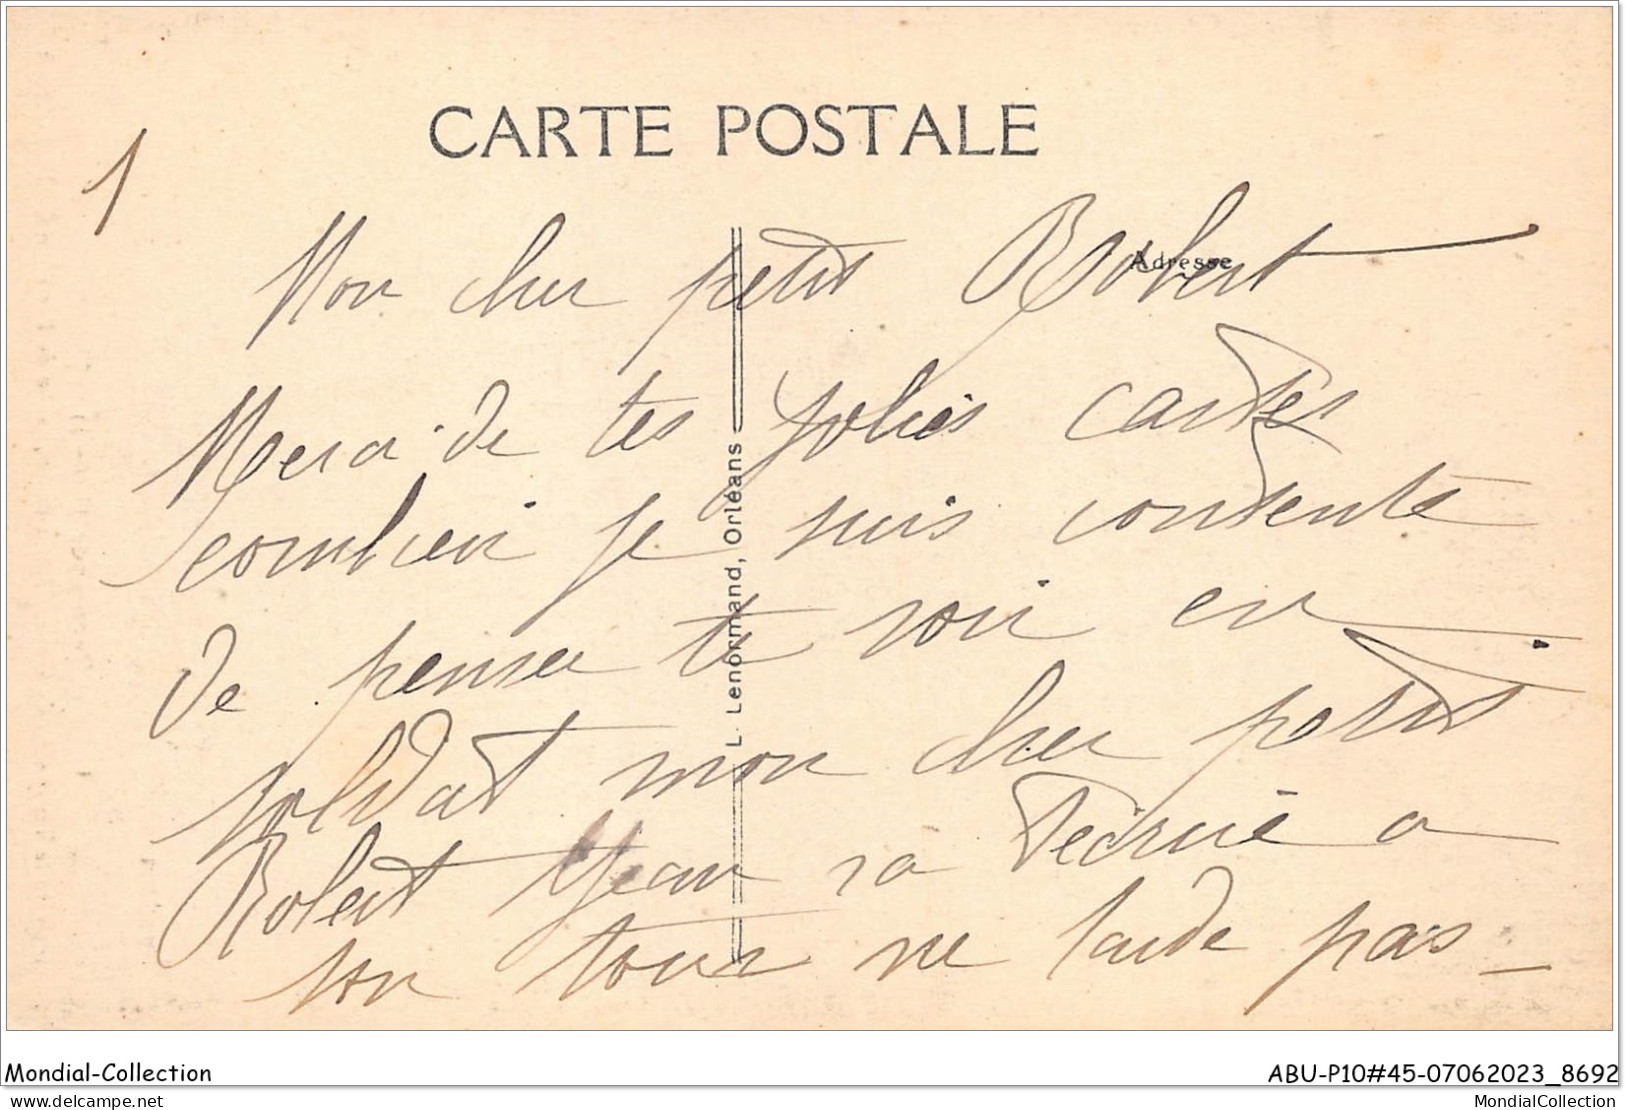 CARTE POSTALE
1
Adresse
Mon cher petit Robert
Merci de tes jolies cartes
combien je suis contente
de penser te voir en
soldat mon cher petit
Robert Jean va t'ecrire a
son tour ne tarde pas —
L. Lenormand, Orléans
Mondial-Collection
ABU-P10#45-07062023_8692
www.delcampe.net
MondialCollection